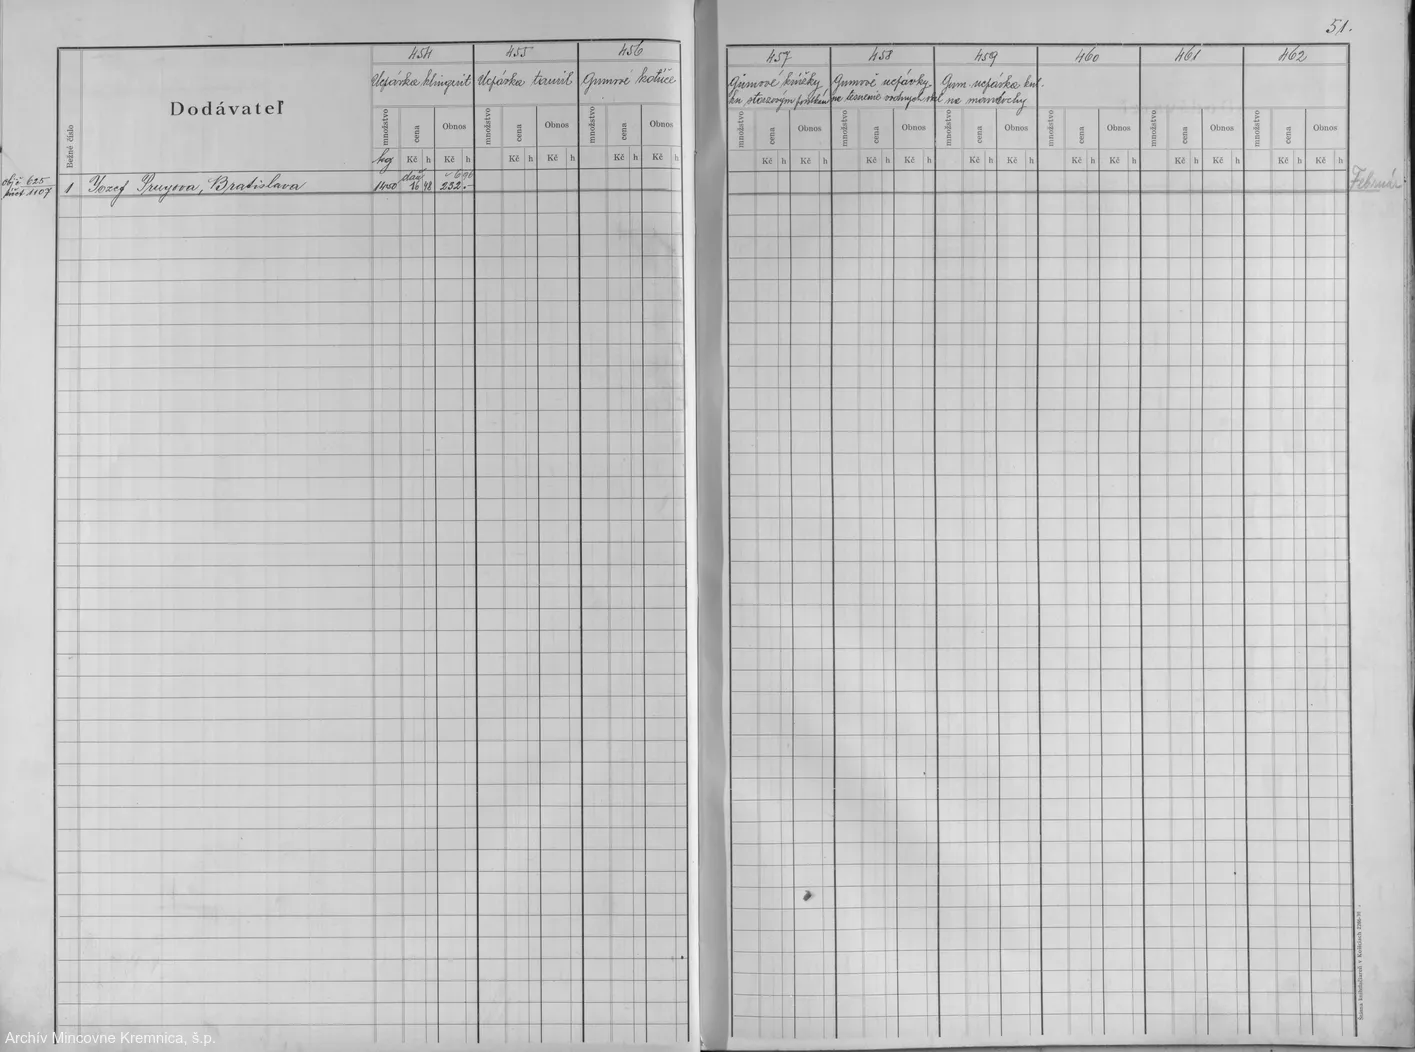 51.
454
455
456
457
458
459
460
461
462
Dodávateľ
Bežné číslo
Ucpávka klingerit
Ucpávka
Gumové kotúče
Gumové krúžky
ku
Gumové ucpávky
na tesnenie vodných
Gum ucpávka
na
množstvo cena Obnos množstvo cena Obnos množstvo cena Obnos
množstvo cena Obnos množstvo cena Obnos množstvo cena Obnos množstvo cena Obnos množstvo cena Obnos množstvo cena Obnos
kg Kč h Kč h Kč h Kč h Kč h Kč h
Kč h Kč h Kč h Kč h Kč h Kč h Kč h Kč h Kč h Kč h Kč h Kč h
obj. č 625
1107
daň 696
1 Jozef Bratislava 1450 16 48 232.-
Február
Archív Mincovne Kremnica, š.p.